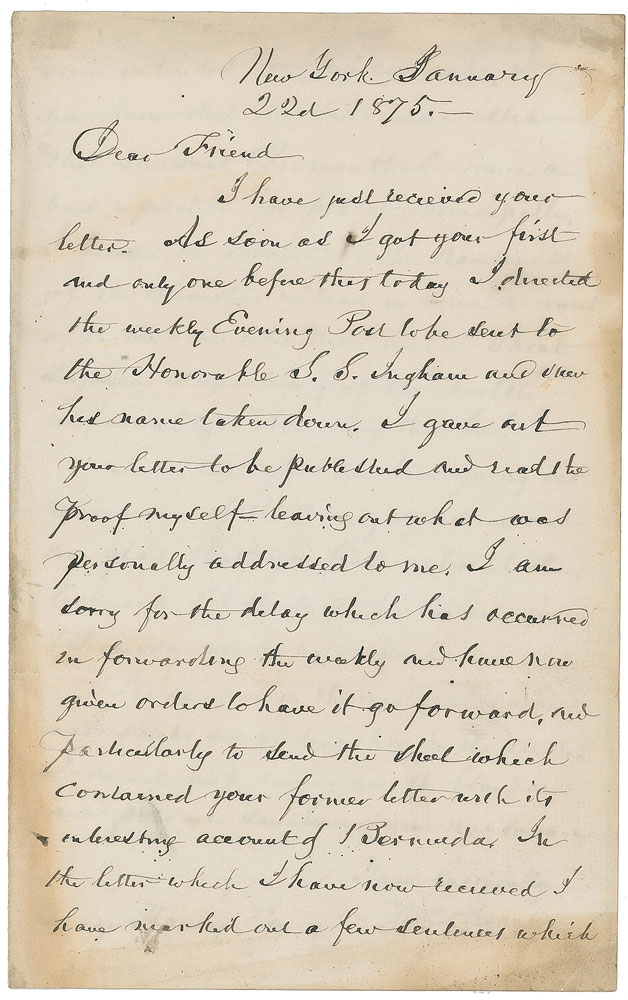 New York January
22d 1875.—
Dear Friend
I have just recieved your
letter. As soon as I got your first
and only one before this today I directed
the weekly Evening Post to be sent to
the Honorable S. S. Ingham and saw
his name taken down. I gave out
your letter to be published and read the
Proof myself leaving out what was
personally addressed to me. I am
sorry for the delay which has occurred
in forwarding the weekly and have now
given orders to have it go forward, and
particularly to send the sheet which
contained your former letter with its
interesting account of Bermuda. In
the letter which I have now recieved I
have marked out a few sentences which